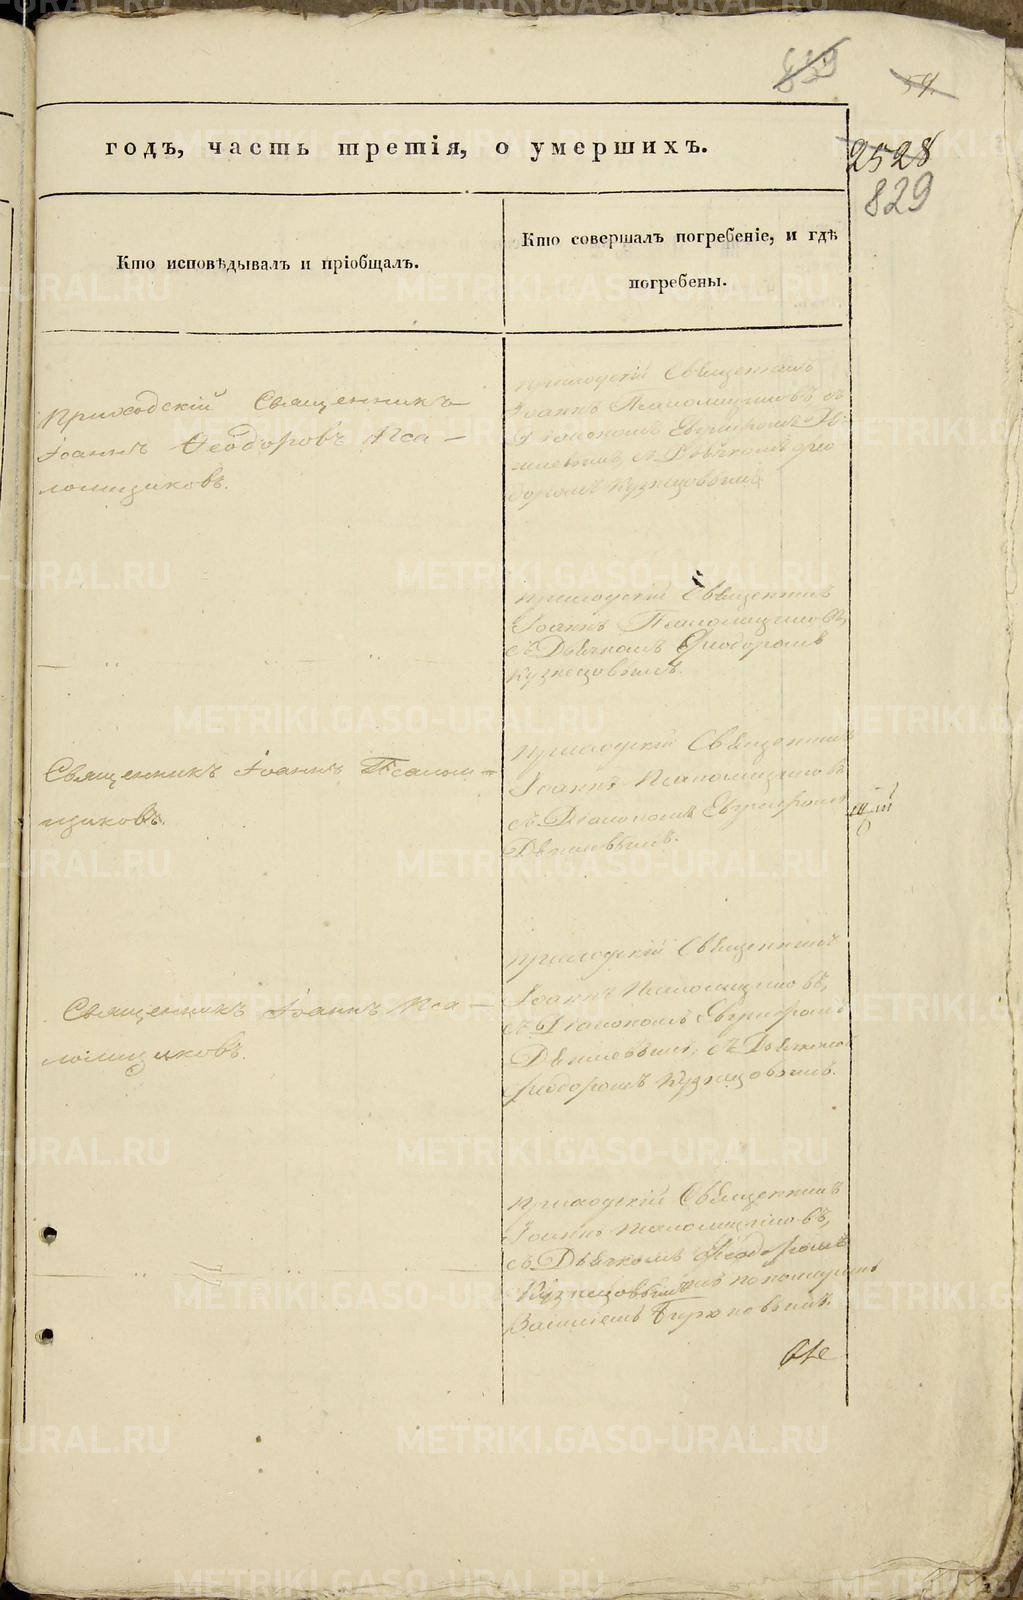 839
54.
годъ, часть третія, о умершихъ.
2528
829
Кто исповѣдывалъ и пріобщалъ.
Кто совершалъ погребеніе, и гдѣ
погребены.
Приходскій Священникъ
Іоаннъ Ѳеодоровъ Пса-
ломщиковъ.
Приходскій Священникъ
Іоаннъ Псаломщиковъ съ
Діакономъ
Дьячкомъ Ѳео
доромъ Кузнецовымъ
Приходскій Священникъ
Іоаннъ Псаломщиковъ,
съ Дьячкомъ Ѳеодоромъ
Кузнецовымъ.
Священникъ Іоаннъ Псалом-
щиковъ.
Приходскій Священникъ
Іоаннъ Псаломщиковъ
съ Діакономъ
Священникъ Іоаннъ Пса-
ломщиковъ.
Приходскій Священникъ
Іоаннъ Псаломщиковъ,
съ Діакономъ
съ Дьячкомъ
Ѳеодоромъ Кузнецовымъ.
Приходскій Священникъ
Іоаннъ Псаломщиковъ,
съ Дьячкомъ Ѳеодоромъ
Кузнецовымъ пономаремъ
Бирюковымъ.
METRIKI.GASO-URAL.RU